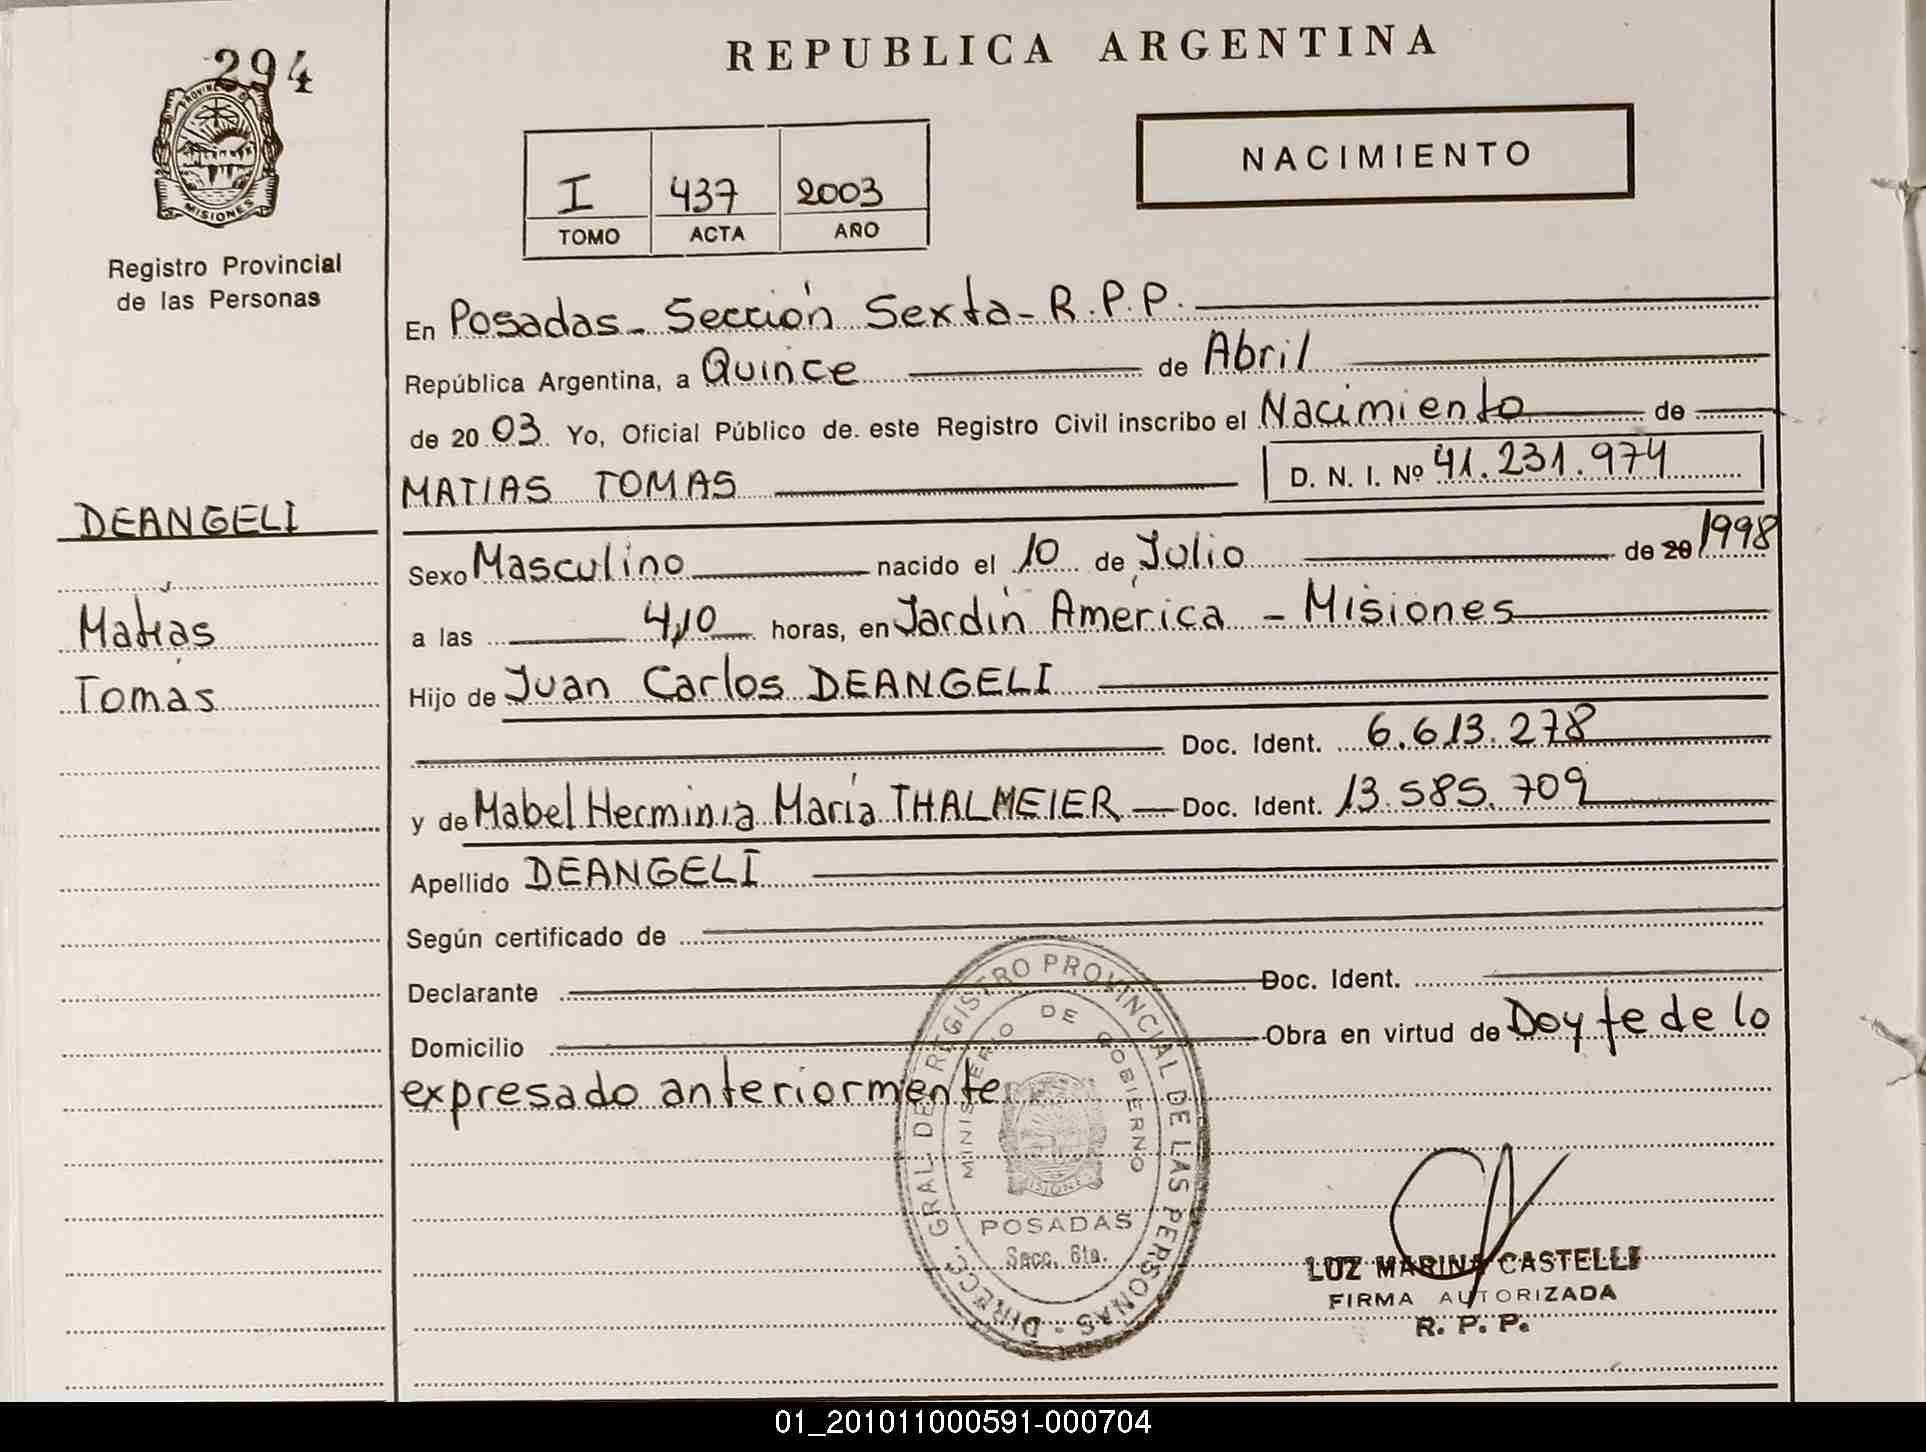 294
PROVINCIA DE
MISIONES
Registro Provincial
de las Personas
DEANGELI
Matías
Tomás
REPUBLICA ARGENTINA
I 437 2003
TOMO ACTA AÑO
NACIMIENTO
En Posadas - Sección Sexta - R.P.P.
República Argentina, a Quince de Abril
de 20 03 Yo, Oficial Público de. este Registro Civil inscribo el Nacimiento de
MATIAS TOMAS D. N. I. Nº 41.231.974
Sexo Masculino nacido el 10 de Julio de 20 1998
a las 4,10 horas, en Jardín América - Misiones
Hijo de Juan Carlos DEANGELI
Doc. Ident. 6.613.278
y de Mabel Herminia María THALMEIER Doc. Ident. 13.585.709
Apellido DEANGELI
Según certificado de
Declarante Doc. Ident.
Domicilio Obra en virtud de Doy fe de lo
expresado anteriormente
DIRECC. GRAL DEL REGISTRO PROVINCIAL DE LAS PERSONAS -
MINISTERIO DE GOBIERNO
MISIONES
POSADAS
Secc. 6ta.
LUZ MARINA CASTELLI
FIRMA AUTORIZADA
R. P. P.
01_201011000591-000704